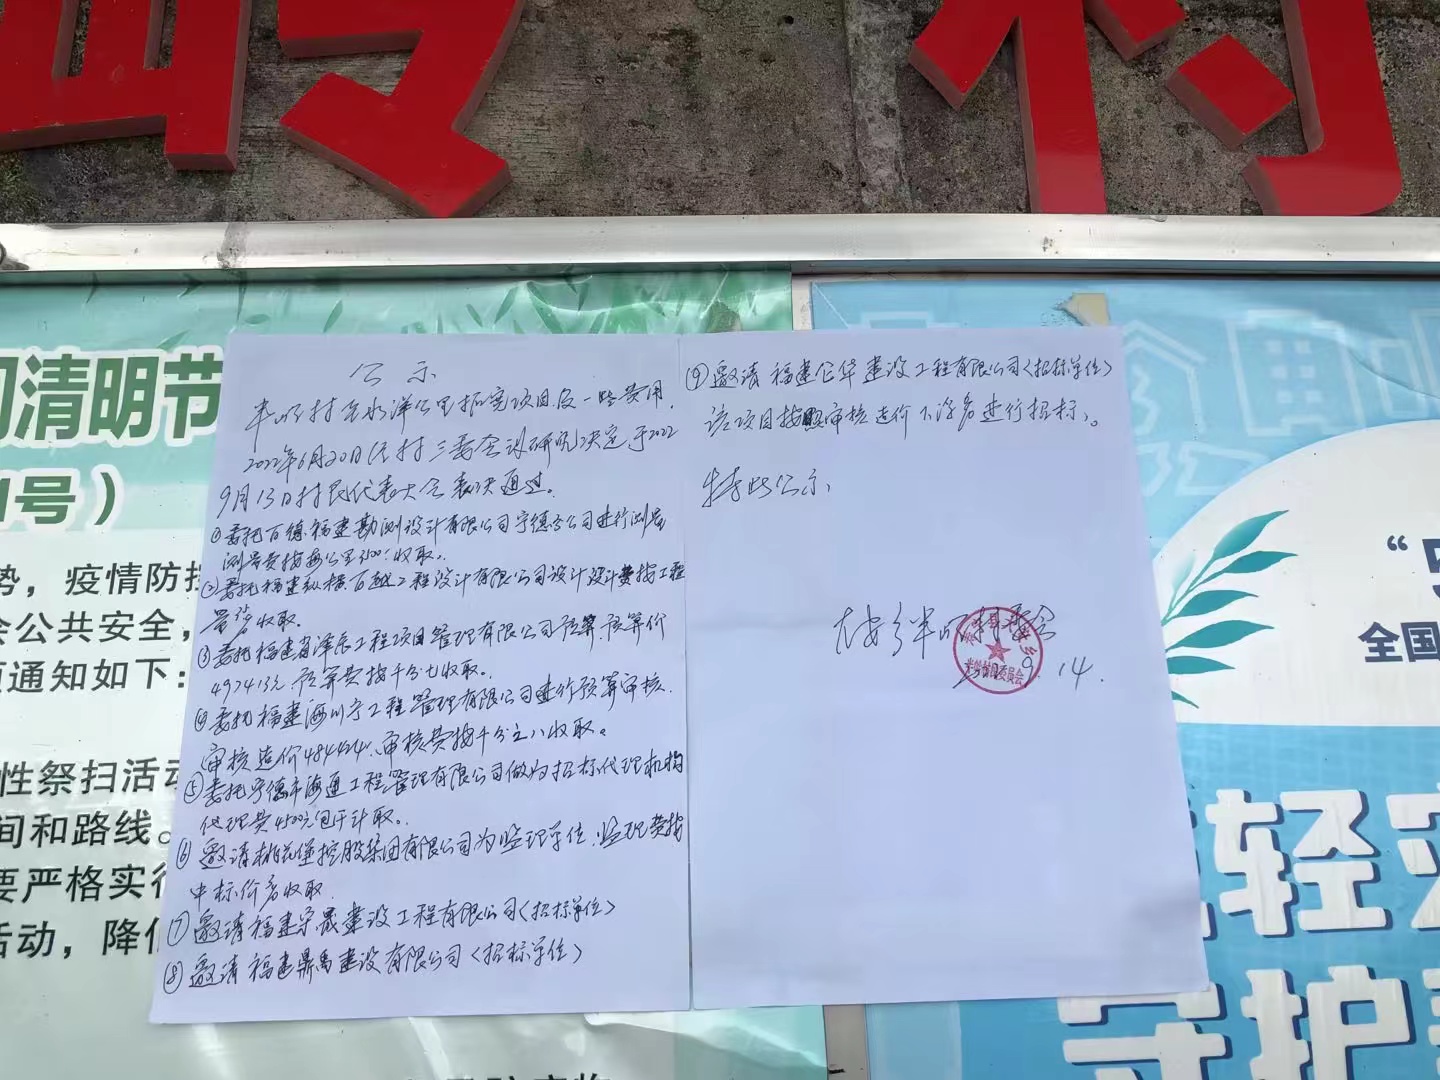 岭村
间清明节
1号）
势，疫情防控
会公共安全，
项通知如下：
性祭扫活动
间和路线。
要严格实行
活动，降低
公示
半岭村至水洋公里拓宽项目及一些费用，
2022年6月20日经村三委会议研究决定于2022
9月13日村民代表大会表决通过。
①委托百德福建勘测设计有限公司宁德分公司进行测量
测量费按每公里 收取。
②委托福建纵横百越工程设计有限公司设计设计费按工程
量 收取。
③委托福建省泽辰工程项目管理有限公司预算，预算价
497413元，预算费按千分七收取。
④委托福建海川宁工程管理有限公司进行预算审核，
审核造价484424，审核费按千分之八收取。
⑤委托宁德市海通工程管理有限公司做为招标代理机构
代理费4500元包干计取。
⑥邀请 控股集团有限公司为监理单位，监理费按
中标价 收取
⑦邀请福建宗晟建设工程有限公司（招标单位）
⑧邀请福建鼎禹建设有限公司（招标单位）
⑨邀请福建 华建设工程有限公司（招标单位）
该项目按照审核造价下浮 进行招标。
特此公示
乡半岭村委会
半岭村村民委员会
9.14.
“
全国
轻
守护